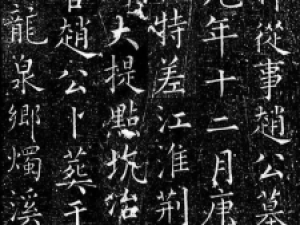 從事趙公墓
元年十二月庚
特差江淮荆
大提點坑冶
趙公卜葬于
龍泉鄉燭溪